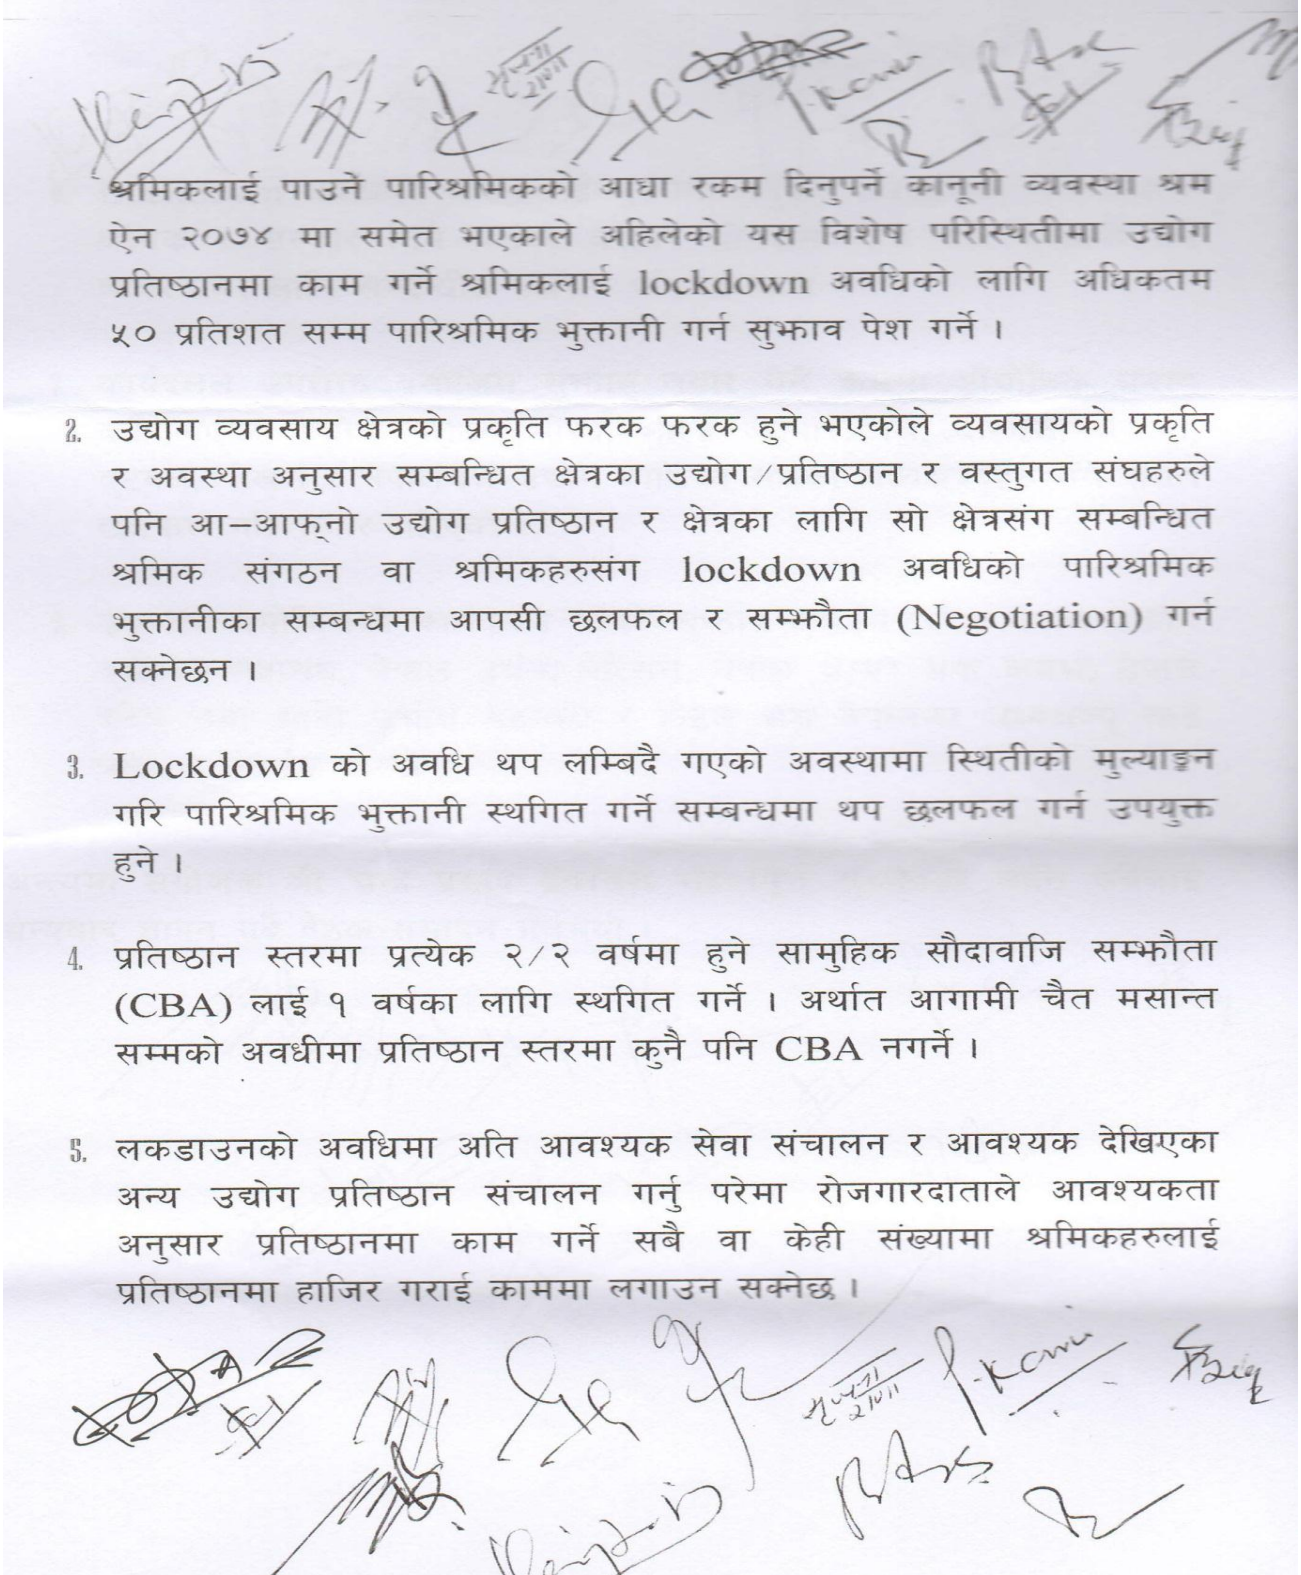 श्रमिकलाई पाउने पारिश्रमिकको आधा रकम दिनुपर्ने कानूनी व्यवस्था श्रम
ऐन २०७४ मा समेत भएकाले अहिलेको यस विशेष परिस्थितीमा उद्योग
प्रतिष्ठानमा काम गर्ने श्रमिकलाई lockdown अवधिको लागि अधिकतम
५० प्रतिशत सम्म पारिश्रमिक भुक्तानी गर्न सुझाव पेश गर्ने ।
2. उद्योग व्यवसाय क्षेत्रको प्रकृति फरक फरक हुने भएकोले व्यवसायको प्रकृति
र अवस्था अनुसार सम्बन्धित क्षेत्रका उद्योग/प्रतिष्ठान र वस्तुगत संघहरुले
पनि आ–आफ्नो उद्योग प्रतिष्ठान र क्षेत्रका लागि सो क्षेत्रसंग सम्बन्धित
श्रमिक संगठन वा श्रमिकहरुसंग lockdown अवधिको पारिश्रमिक
भुक्तानीका सम्बन्धमा आपसी छलफल र सम्झौता (Negotiation) गर्न
सक्नेछन ।
3. Lockdown को अवधि थप लम्बिदै गएको अवस्थामा स्थितीको मुल्याङ्कन
गरि पारिश्रमिक भुक्तानी स्थगित गर्ने सम्बन्धमा थप छलफल गर्न उपयुक्त
हुने ।
4. प्रतिष्ठान स्तरमा प्रत्येक २/२ वर्षमा हुने सामुहिक सौदावाजि सम्झौता
(CBA) लाई १ वर्षका लागि स्थगित गर्ने । अर्थात आगामी चैत मसान्त
सम्मको अवधीमा प्रतिष्ठान स्तरमा कुनै पनि CBA नगर्ने ।
5. लकडाउनको अवधिमा अति आवश्यक सेवा संचालन र आवश्यक देखिएका
अन्य उद्योग प्रतिष्ठान संचालन गर्नु परेमा रोजगारदाताले आवश्यकता
अनुसार प्रतिष्ठानमा काम गर्ने सबै वा केही संख्यामा श्रमिकहरुलाई
प्रतिष्ठानमा हाजिर गराई काममा लगाउन सक्नेछ ।